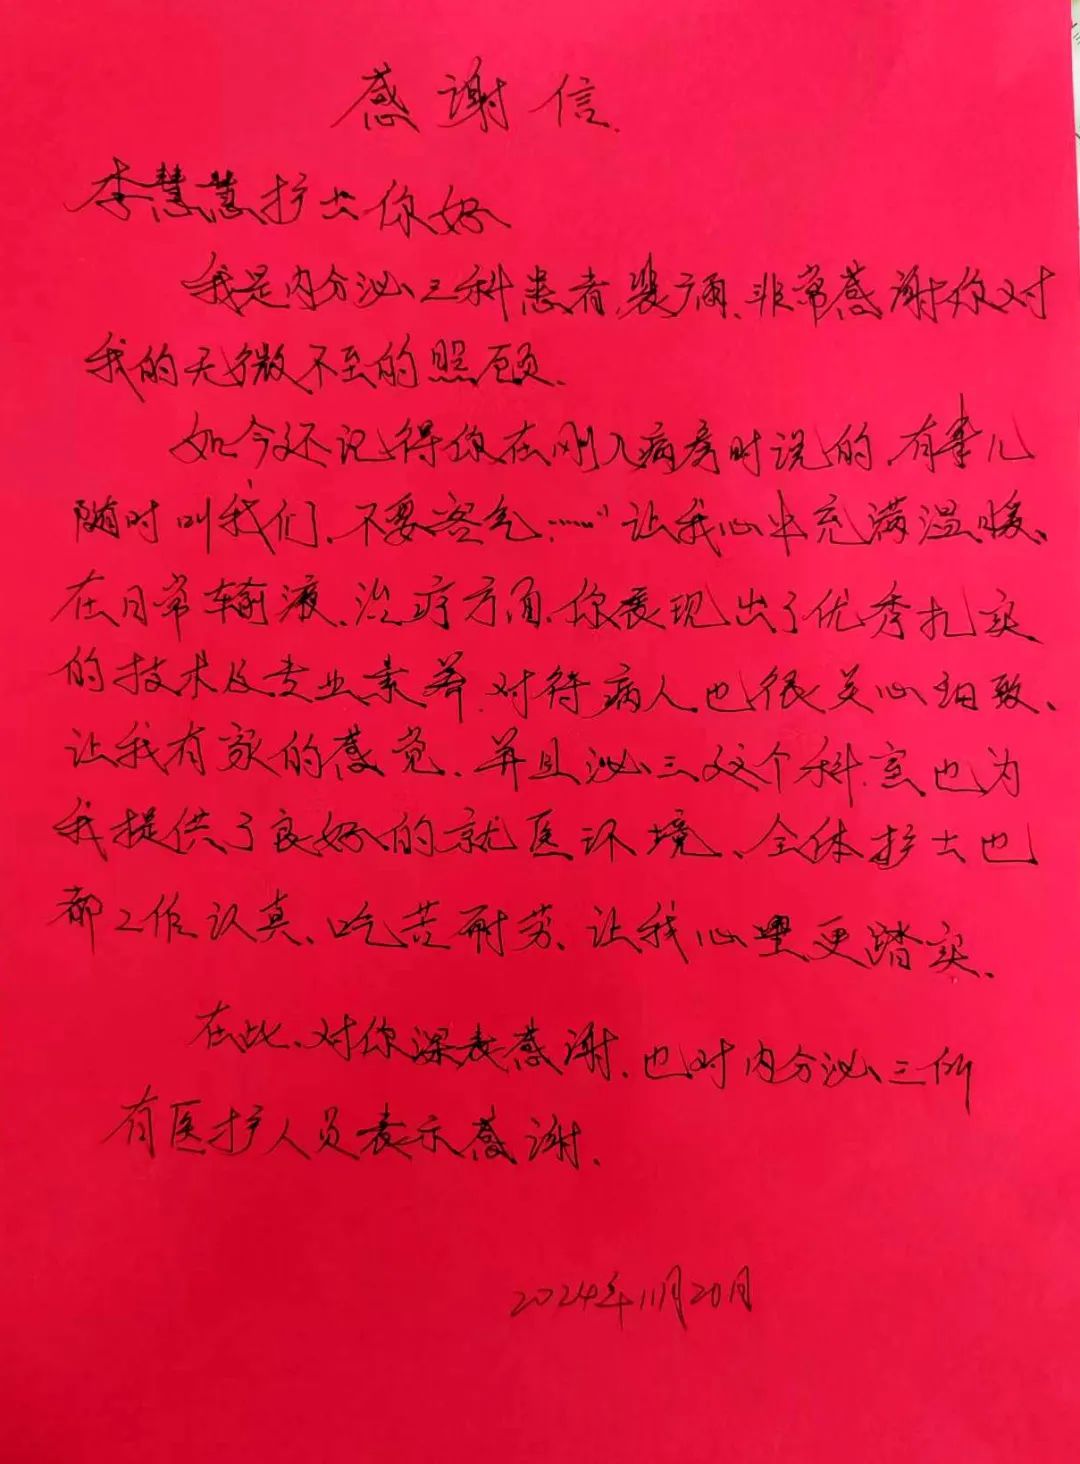 感谢信
李慧慧护士你好
我是内分泌三科患者,裴丽、非常感谢你对
我的无微不至的照顾、
如今还记得你在刚入病房时说的、有事儿
随时叫我们、不要客气、……”让我心中充满温暖、
在日常输液、治疗方面、你表现出了优秀扎实
的技术及专业素养、对待病人也很关心细致、
让我有家的感觉、并且泌三这个科室也为
我提供了良好的就医环境、全体护士也
都工作认真、吃苦耐劳、让我心里更踏实、
在此、对你深表感谢、也对内分泌三所
有医护人员表示感谢、
2024年11月20日